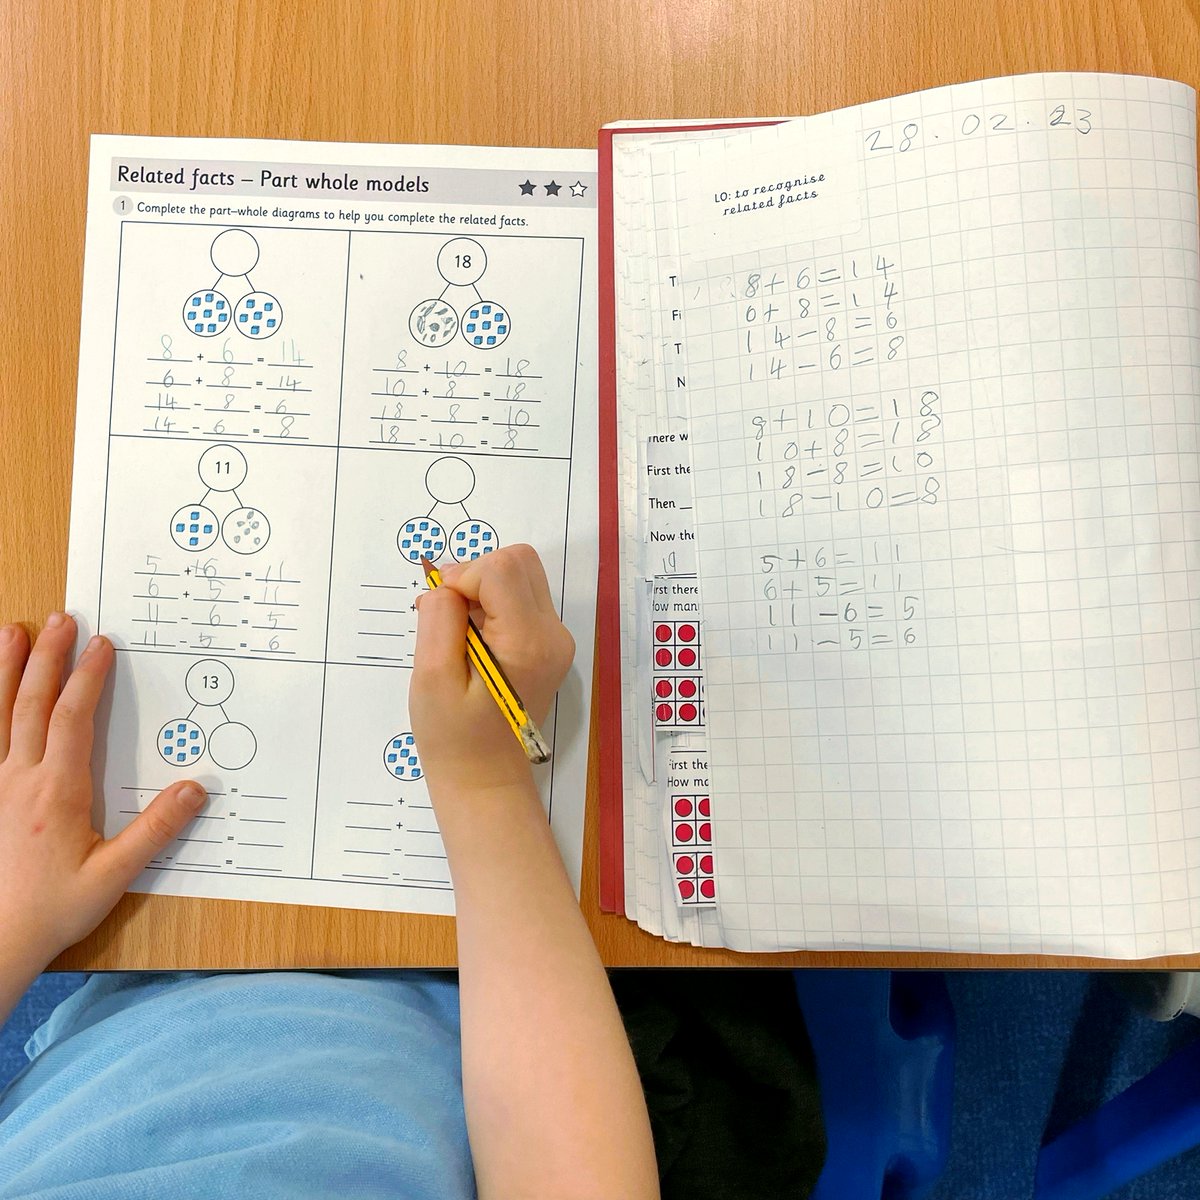 Related facts – Part whole models
1 Complete the part–whole diagrams to help you complete the related facts.
18
8 + 6 = 14
6 + 8 = 14
14 - 8 = 6
14 - 6 = 8
8 + 10 = 18
10 + 8 = 18
18 - 8 = 10
18 - 10 = 8
11
5 + 6 = 11
6 + 5 = 11
11 - 6 = 5
11 - 5 = 6
13
28.02.23
LO: to recognise
related facts
8+6=14
6+8=14
14-8=6
14-6=8
8+10=18
10+8=18
18-8=10
18-10=8
5+6=11
6+5=11
11-6=5
11-5=6
First the
Then
Now the
19
First the